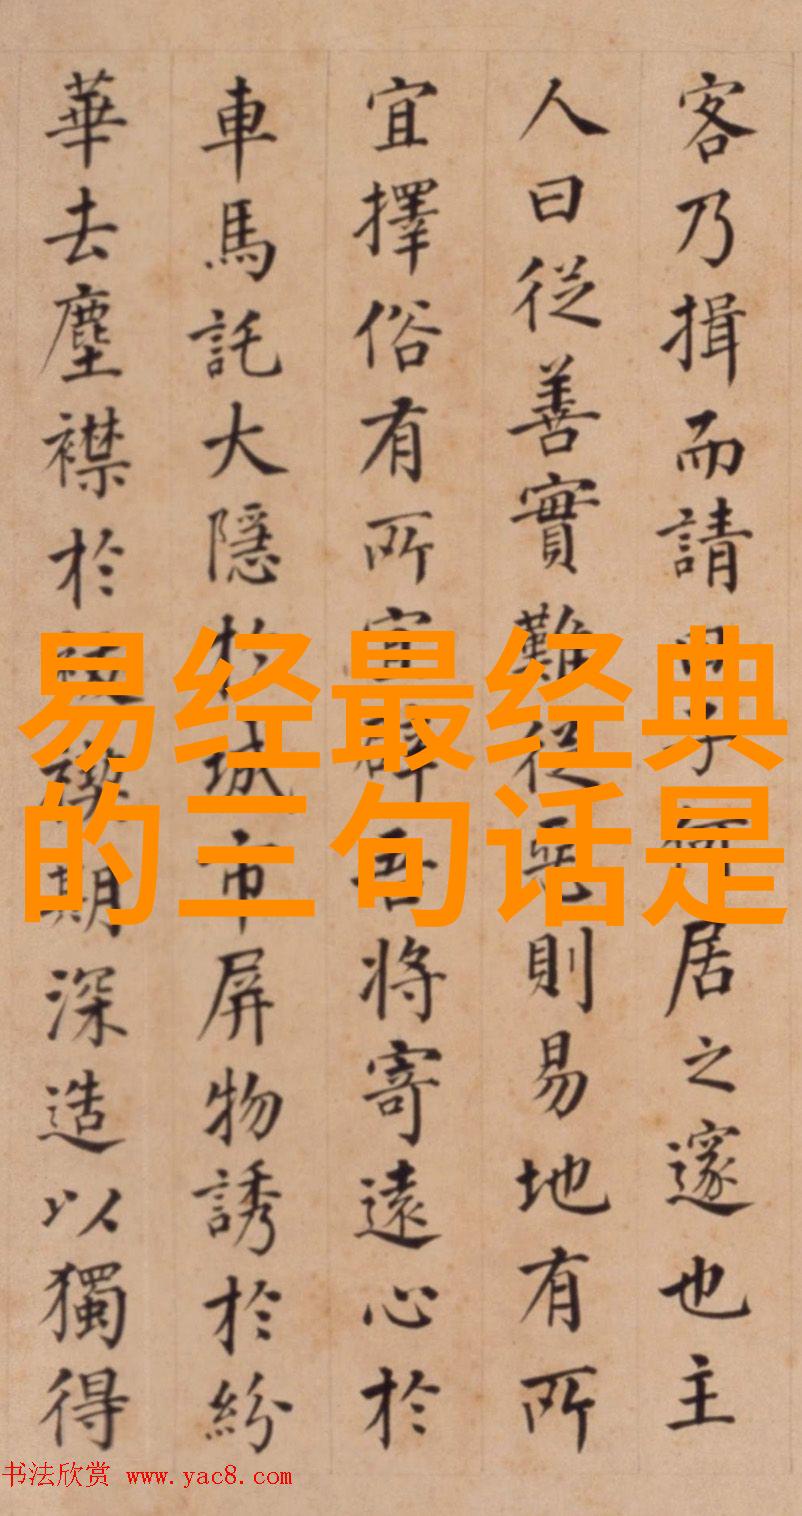 客乃揖而請曰子何居之邃也主
人曰従善實難従惡則易地有所
宜擇俗有所宜辟吾將寄遠心於
車馬託大隱於城市屏物誘於紛
華去塵襟於期深造以獨得
易经最经典
的三句话是
书法欣赏 www.yac8.com